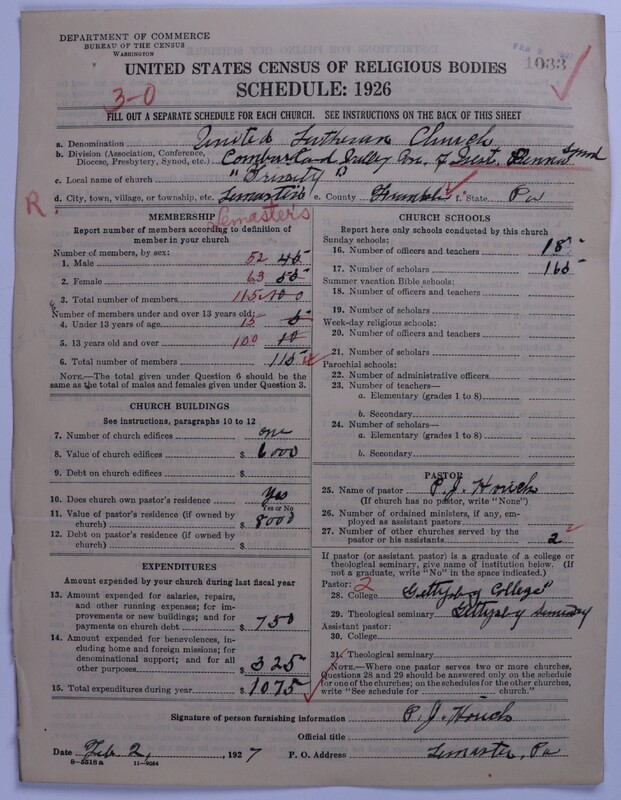 DEPARTMENT OF COMMERCE
BUREAU OF THE CENSUS
WASHINGTON
FEB 1033
UNITED STATES CENSUS OF RELIGIOUS BODIES
SCHEDULE: 1926
3-0
FILL OUT A SEPARATE SCHEDULE FOR EACH CHURCH. SEE INSTRUCTIONS ON THE BACK OF THIS SHEET
a. Denomination United Lutheran Church
b. Division (Association, Conference, Diocese, Presbytery, Synod, etc.) Valley Synod
c. Local name of church "Trinity"
d. City, town, village, or township, etc. Lemasters e. County Franklin f. State Pa
R Lemasters
MEMBERSHIP
Report number of members according to definition of
member in your church
Number of members, by sex:
1. Male 52 45
2. Female 63 55
3. Total number of members 115 100
Number of members under and over 13 years old:
4. Under 13 years of age 15 5
5. 13 years old and over 100 10
6. Total number of members 115
NOTE.—The total given under Question 6 should be the
same as the total of males and females given under Question 3.
CHURCH BUILDINGS
See instructions, paragraphs 10 to 12
7. Number of church edifices one
8. Value of church edifices $ 6000
9. Debt on church edifices $
10. Does church own pastor's residence Yes
Yes or No
11. Value of pastor's residence (if owned by
church) $ 8000
12. Debt on pastor's residence (if owned by
church) $
EXPENDITURES
Amount expended by your church during last fiscal year
13. Amount expended for salaries, repairs,
and other running expenses; for im-
provements or new buildings; and for
payments on church debt $ 750
14. Amount expended for benevolences, in-
cluding home and foreign missions; for
denominational support; and for all
other purposes $ 325
15. Total expenditures during year $ 1075
CHURCH SCHOOLS
Report here only schools conducted by this church
Sunday schools:
16. Number of officers and teachers 18
17. Number of scholars 165
Summer vacation Bible schools:
18. Number of officers and teachers
19. Number of scholars
Week-day religious schools:
20. Number of officers and teachers
21. Number of scholars
Parochial schools:
22. Number of administrative officers
23. Number of teachers—
a. Elementary (grades 1 to 8)
b. Secondary
24. Number of scholars—
a. Elementary (grades 1 to 8)
b. Secondary
PASTOR
25. Name of pastor P. J. Houch
(If church has no pastor, write "None")
26. Number of ordained ministers, if any, em-
ployed as assistant pastors
27. Number of other churches served by the
pastor or his assistants 2
If pastor (or assistant pastor) is a graduate of a college or
theological seminary, give name of institution below. (If
not a graduate, write "No" in the space indicated.)
Pastor: 2
28. College Gettysburg College"
29. Theological seminary Gettysburg Seminary
Assistant pastor:
30. College
31. Theological seminary
NOTE.—Where one pastor serves two or more churches,
Questions 28 and 29 should be answered only on the schedule
for one of the churches; on the schedules for the other churches,
write "See schedule for church."
Signature of person furnishing information P. J. Houch
Official title
Date Feb. 2, 1927 P. O. Address Lemaster, Pa
8-5518a 11-9084